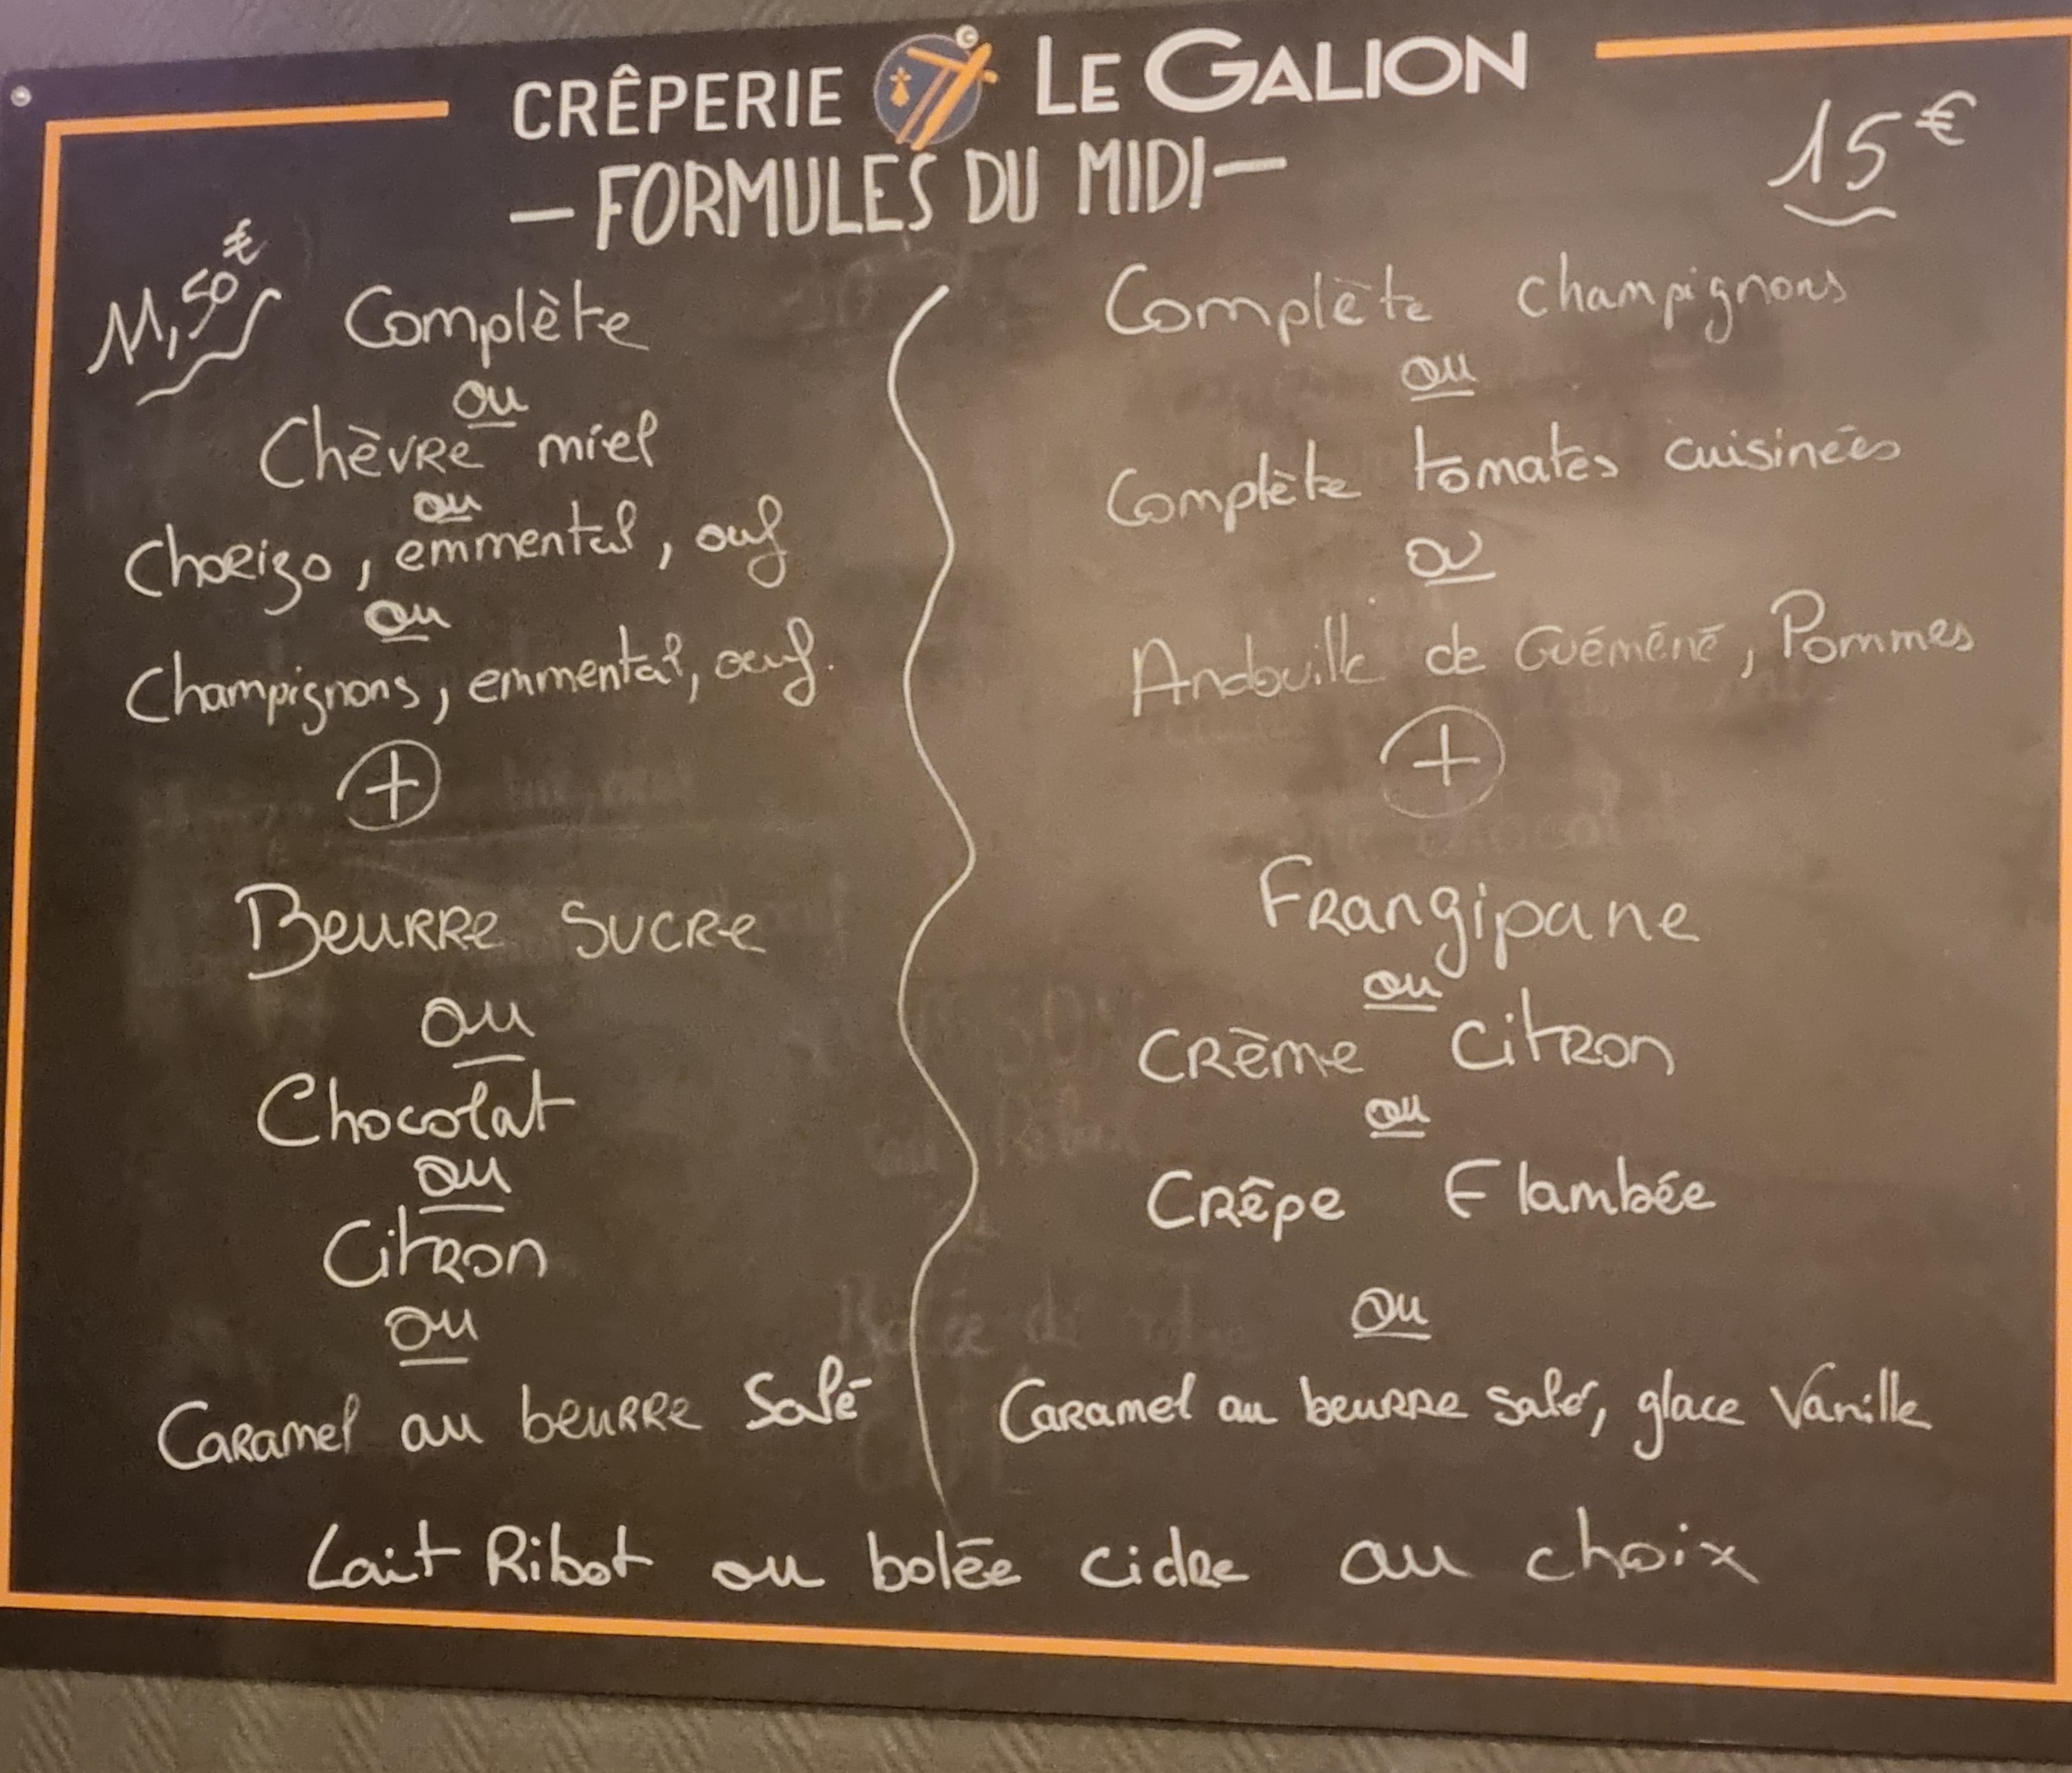 CRÊPERIE LE GALION
— FORMULES DU MIDI —
11,50€
Complète
ou
Chèvre miel
ou
Chorizo, emmental, ouf
ou
Champignons, emmental, oeuf.
+
Beurre sucre
ou
Chocolat
ou
Citron
ou
Caramel au beurre salé
15€
Complète champignons
ou
Complète tomates cuisinées
ou
Andouille de Guéméné, Pommes
+
Frangipane
ou
Crème Citron
ou
Crêpe Flambée
ou
Caramel au beurre salé, glace Vanille
Lait Ribot ou bolée cidre au choix